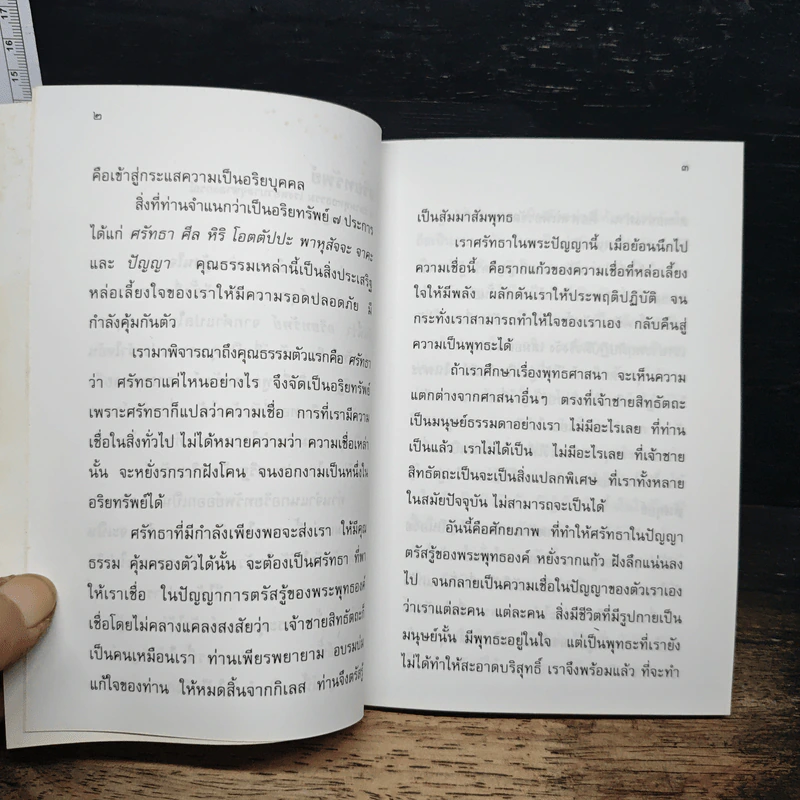 17
16
15
๒
คือเข้าสู่กระแสความเป็นอริยบุคคล
สิ่งที่ท่านจำแนกว่าเป็นอริยทรัพย์ ๗ ประการ
ได้แก่ ศรัทธา ศีล หิริ โอตตัปปะ พาหุสัจจะ จาคะ
และ ปัญญา คุณธรรมเหล่านี้เป็นสิ่งประเสริฐ
หล่อเลี้ยงใจของเราให้มีความรอดปลอดภัย มี
กำลังคุ้มกันตัว
เรามาพิจารณาถึงคุณธรรมตัวแรกคือ ศรัทธา
ว่า ศรัทธาแค่ไหนอย่างไร จึงจัดเป็นอริยทรัพย์
เพราะศรัทธาก็แปลว่าความเชื่อ การที่เรามีความ
เชื่อในสิ่งทั่วไป ไม่ได้หมายความว่า ความเชื่อเหล่า
นั้น จะหยั่งรกรากฝังโคน จนงอกงามเป็นหนึ่งใน
อริยทรัพย์ได้
ศรัทธาที่มีกำลังเพียงพอจะส่งเรา ให้มีคุณ
ธรรม คุ้มครองตัวได้นั้น จะต้องเป็นศรัทธา ที่พา
ให้เราเชื่อ ในปัญญาการตรัสรู้ของพระพุทธองค์
เชื่อโดยไม่คลางแคลงสงสัยว่า เจ้าชายสิทธัตถะก็
เป็นคนเหมือนเรา ท่านเพียรพยายาม อบรมบ่ม
แก้ใจของท่าน ให้หมดสิ้นจากกิเลส ท่านจึงตรัสรู้
๓
เป็นสัมมาสัมพุทธ
เราศรัทธาในพระปัญญานี้ เมื่อย้อนนึกไป
ความเชื่อนี้ คือรากแก้วของความเชื่อที่หล่อเลี้ยง
ใจให้มีพลัง ผลักดันเราให้ประพฤติปฏิบัติ จน
กระทั่งเราสามารถทำให้ใจของเราเอง กลับคืนสู่
ความเป็นพุทธะได้
ถ้าเราศึกษาเรื่องพุทธศาสนา จะเห็นความ
แตกต่างจากศาสนาอื่นๆ ตรงที่เจ้าชายสิทธัตถะ
เป็นมนุษย์ธรรมดาอย่างเรา ไม่มีอะไรเลย ที่ท่าน
เป็นแล้ว เราไม่ได้เป็น ไม่มีอะไรเลย ที่เจ้าชาย
สิทธัตถะเป็นจะเป็นสิ่งแปลกพิเศษ ที่เราทั้งหลาย
ในสมัยปัจจุบัน ไม่สามารถจะเป็นได้
อันนี้คือศักยภาพ ที่ทำให้ศรัทธาในปัญญา
ตรัสรู้ของพระพุทธองค์ หยั่งรากแก้ว ฝังลึกแน่นลง
ไป จนกลายเป็นความเชื่อในปัญญาของตัวเราเอง
ว่าเราแต่ละคน แต่ละคน สิ่งมีชีวิตที่มีรูปกายเป็น
มนุษย์นั้น มีพุทธะอยู่ในใจ แต่เป็นพุทธะที่เรายัง
ไม่ได้ทำให้สะอาดบริสุทธิ์ เราจึงพร้อมแล้ว ที่จะทำ